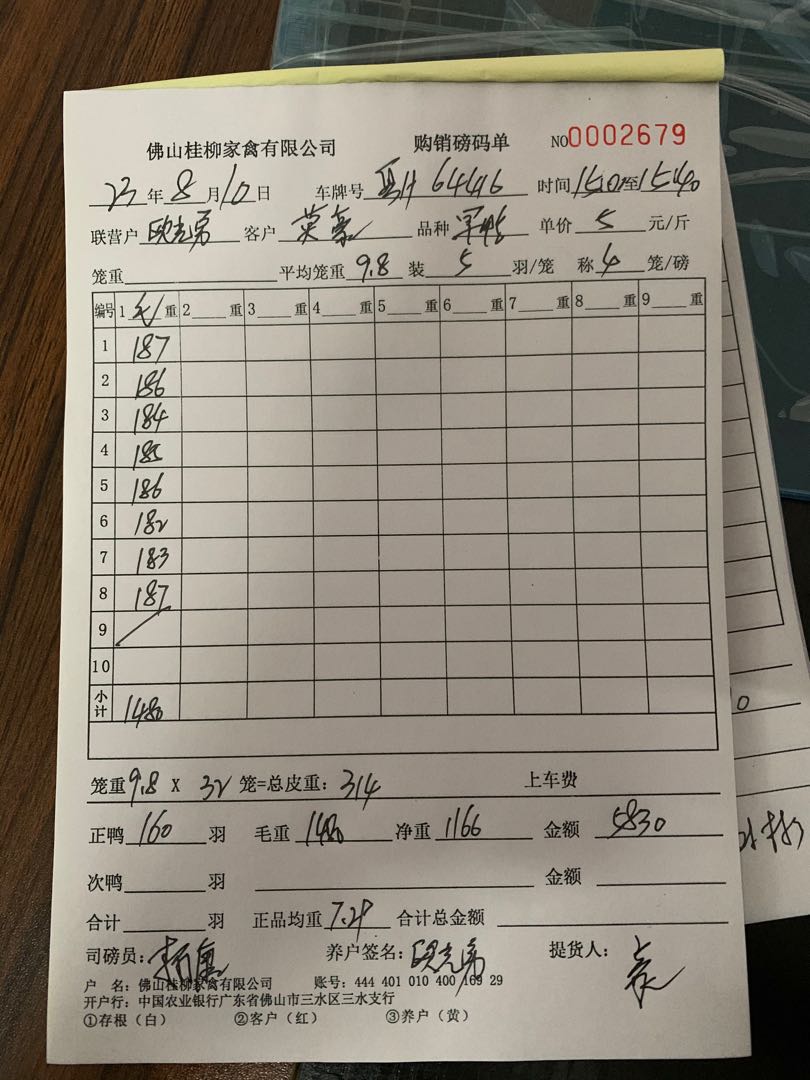 佛山桂柳家禽有限公司 购销磅码单 NO0002679
23年8月10日 车牌号 64446 时间1510至1540
联营户 欧志勇 客户 英豪 品种 单价 5 元/斤
笼重 平均笼重 9.8 装 5 羽/笼 称 4 笼/磅
编号 1 毛 重 2 重 3 重 4 重 5 重 6 重 7 重 8 重 9 重
1 187
2 186
3 184
4 185
5 186
6 182
7 183
8 187
9
10
小计 1480
笼重9.8 X 32 笼=总皮重: 314 上车费
正鸭 160 羽 毛重 1480 净重 1166 金额 5830
次鸭 羽 金额
合计 羽 正品均重 7.29 合计总金额
司磅员: 养户签名: 欧志勇 提货人:
户 名: 佛山桂柳家禽有限公司 账号: 444 401 010 400 169 29
开户行: 中国农业银行广东省佛山市三水区三水支行
①存根(白) ②客户(红) ③养户(黄)